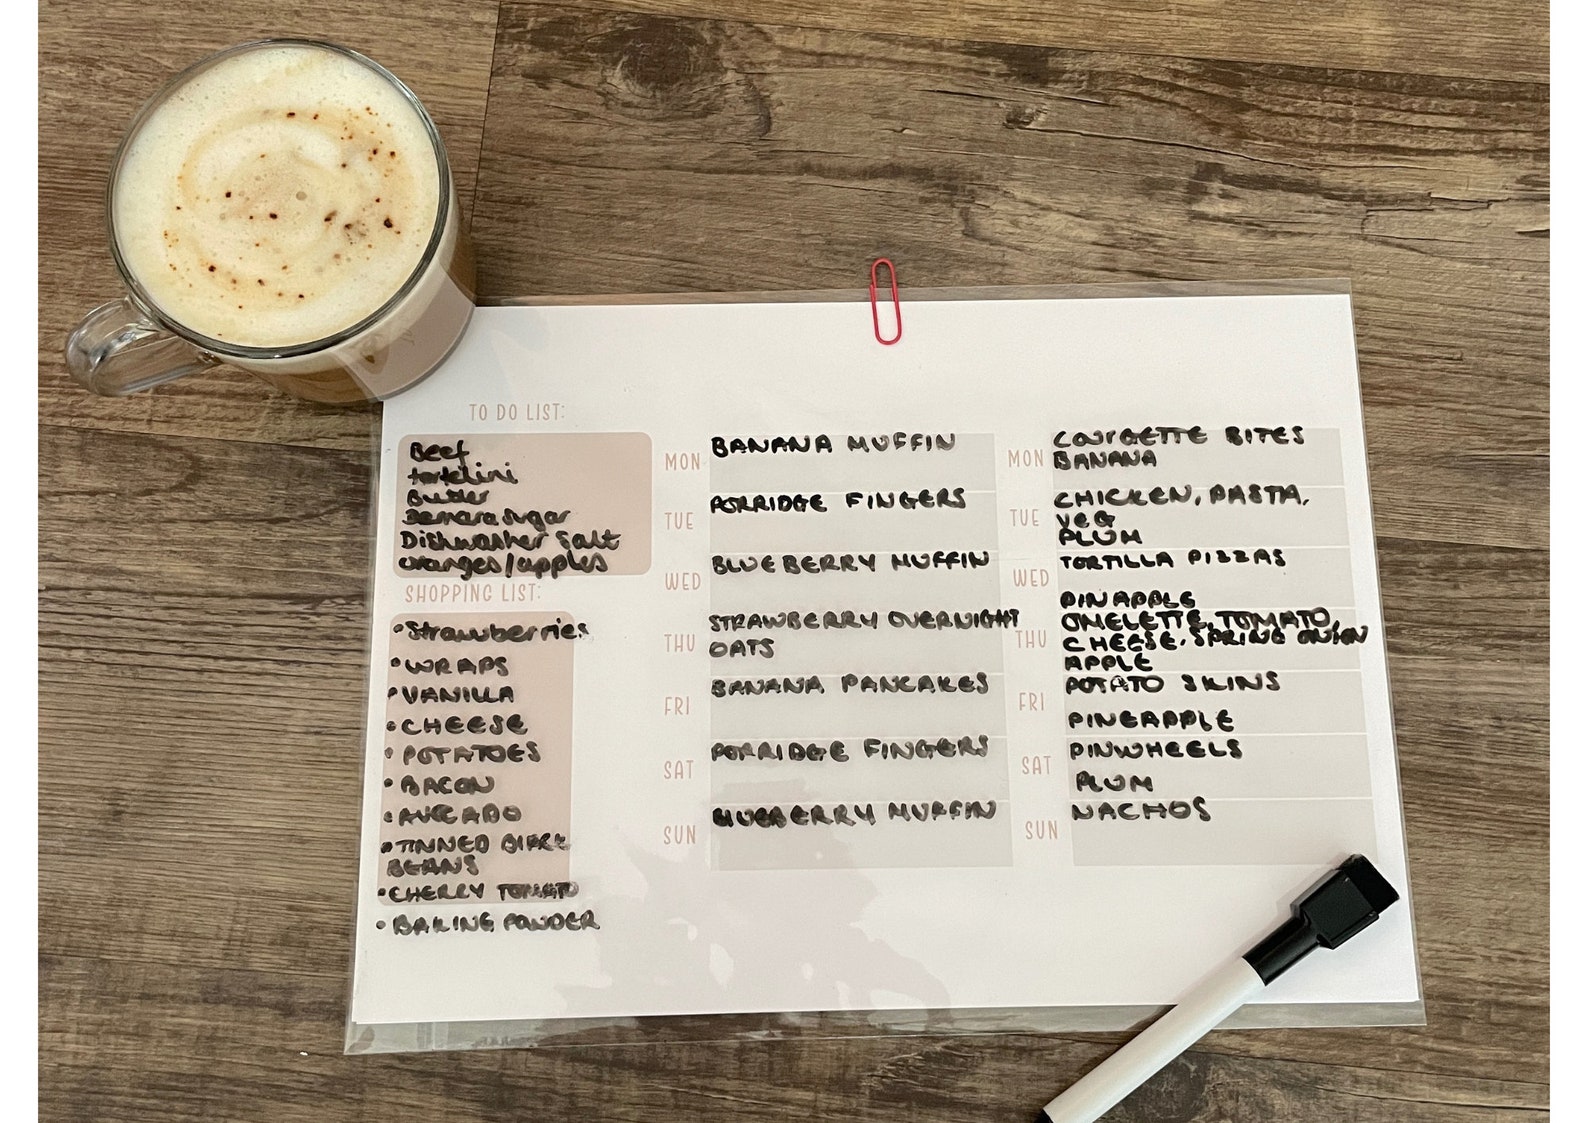 TO DO LIST:
Beef
tortelini
Butter
Demara sugar
Dishwasher salt
oranges/apples
SHOPPING LIST:
•Strawberries
•WRAPS
•VANILLA
•CHEESE
•POTATOES
•BACON
•AVCADO
•TINNED
BEANS
•CHERRY TOMATO
•BAKING POWDER
MON BANANA MUFFIN
TUE PORRIDGE FINGERS
WED BLUEBERRY MUFFIN
THU STRAWBERRY OVERNIGHT
OATS
FRI BANANA PANCAKES
SAT PORRIDGE FINGERS
SUN BLUEBERRY MUFFIN
MON COURGETTE BITES
BANANA
TUE CHICKEN, PASTA,
VEG
PLUM
WED TORTILLA PIZZAS
PINAPPLE
THU OMELETTE, TOMATO,
CHEESE, SPRING ONION
APPLE
FRI POTATO SKINS
PINEAPPLE
SAT PINWHEELS
PLUM
SUN NACHOS